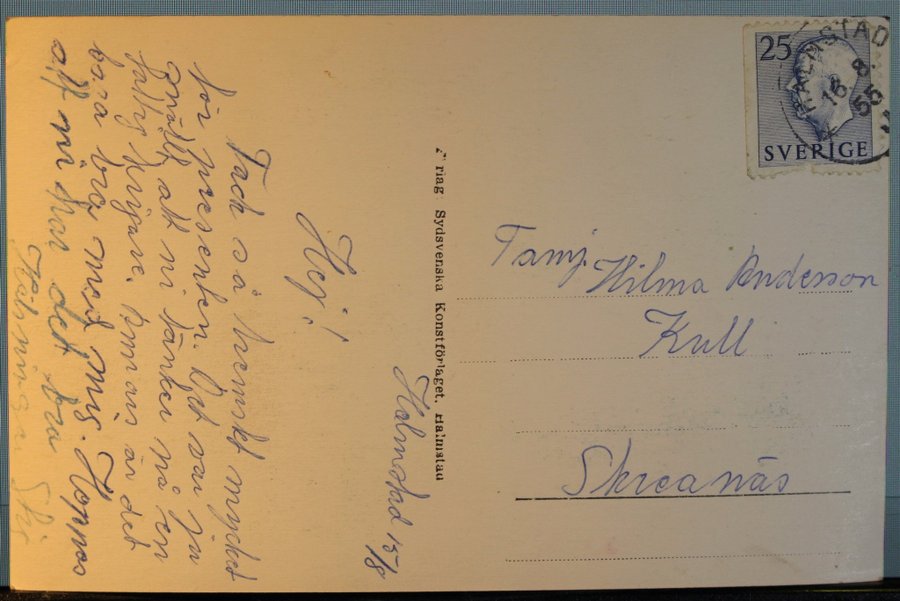 Halmstad 15/8
Hej!
Tack så hemskt mycket
för presenten. Det var ju
snällt att ni tänker på en
fattig krigare. Annars är det
bara bra med mig. Hoppas
att ni har det bra
Hälningar
Sydsvenska Konstförlaget, Halmstad
25
SVERIGE
HALMSTAD
16 8. 55
Famj. Hilma Andersson
Kull
Skreanäs